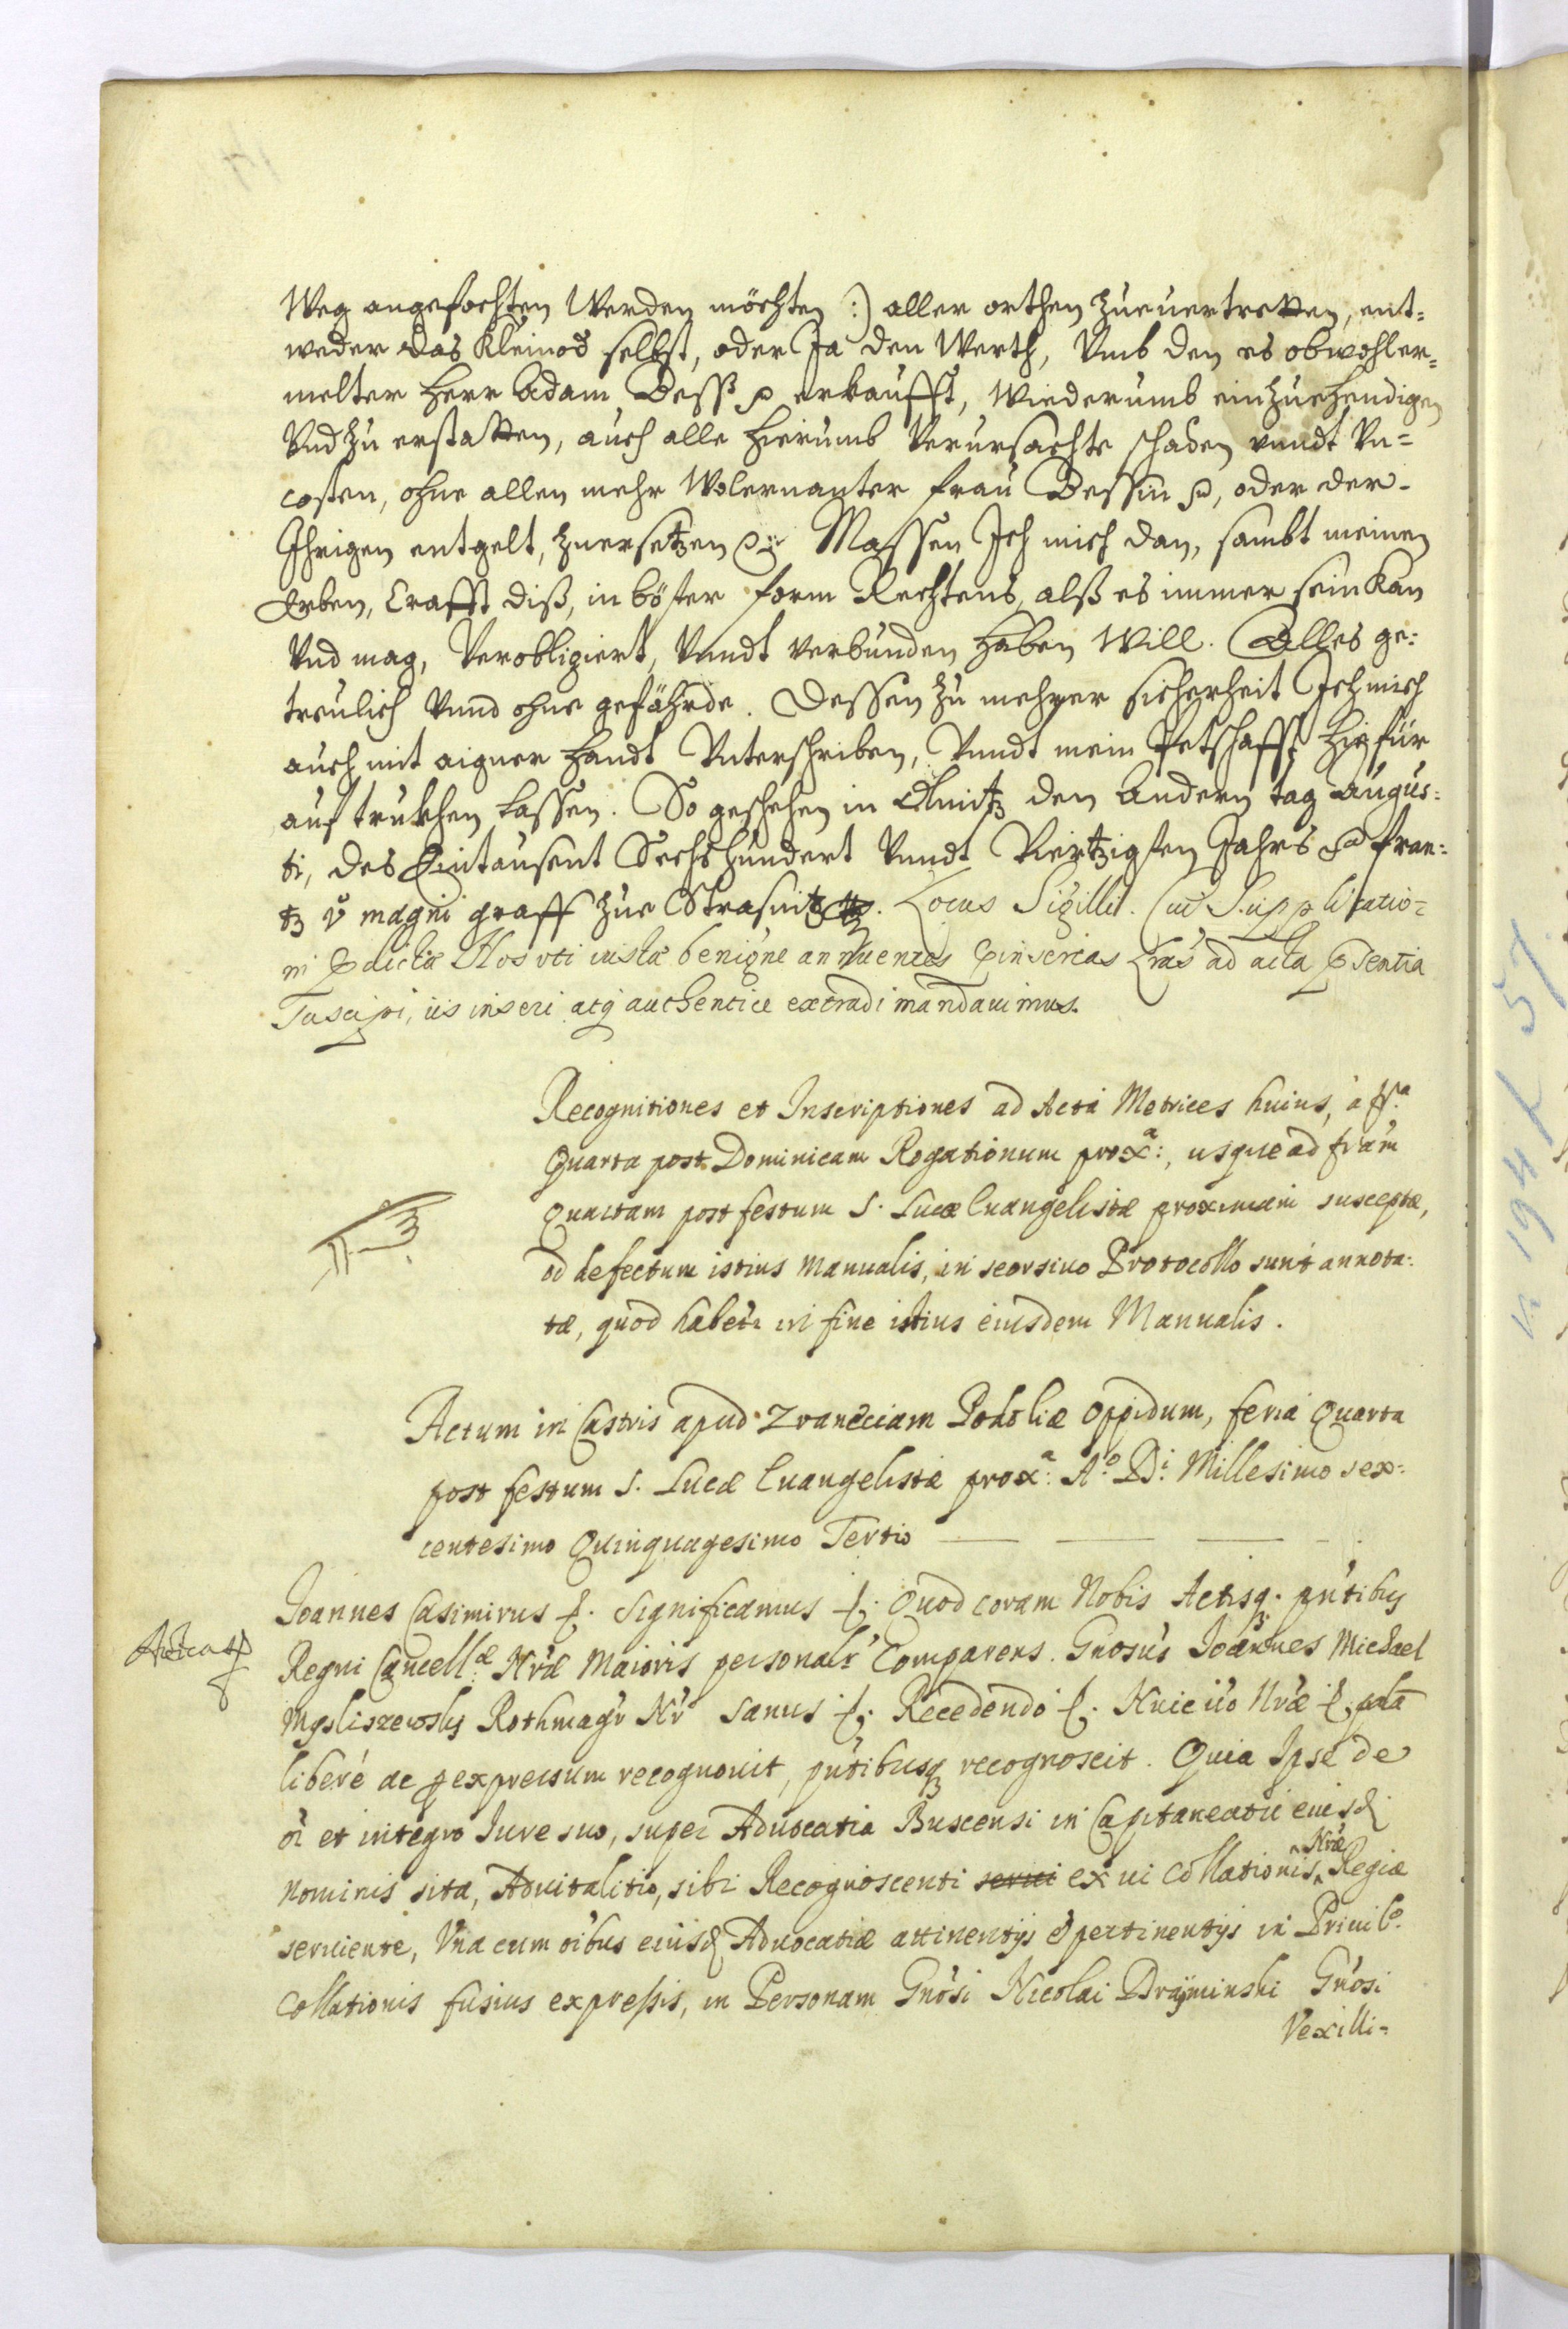 Weg angefochten Werden möchten :) aller orthen zuuertretten, ent=
weder das Kleinod selbst, oder Ja den Werth, Vmb den es obwohler=
melter Herr Adam Dess p erkaufft, Wiederumb einzuehendigen
Vnd zu erstatten, auch alle hierumb Verursachte schaden vnndt Vn=
costen, ohne allen mehr Wolernanter frau Dessin p, oder der
Ihrigen entgelt, zuersetzen p Massen Ich mich dan, sambt meinen
Erben, Crafft diß, in böster form Rechtens, alß es immer sein Kan
Vnd mag, Verobligiert, Vnndt verbunden haben Will. Alles ge:
treulich Vnnd ohne gefährde. Dessen zu mehrer sicherheit Ich mich
auch mit aigner Handt Vnterschriben, Vnndt mein Petschafft hiefür
auf trukhen lassen. So geschehen in Olmitz den Andern tag augus:
ti, des Eintausent Sechshundert Vnndt Viertzigsten Jahrs p fran:
tz v magni graff zue Strasnitz. Locus Sigilli. Cui Supplicatio=
ni pdictæ Nos vti iustæ benigne annuentes pinsertas Lras ad acta psentia
suscipi, iis inseri atq authentice extradi mandauimus.
Recognitiones et Inscriptiones ad Acta Metrices huius, à fr.a
Quarta post Dominicam Rogationum prox.a:, usque ad fram
Quartam post festum S. Lucæ Euangelistæ proximam susceptæ,
ob defectum istius Manualis, in seorsiuo Protocollo sunt annota:
tæ, quod habetr in fine istius eiusdem Manualis.
Actum in Castris apud Zvanéciam Podoliæ Oppidum, feria Quarta
post festum S. Lucæ Euangelistæ prox.a: A.o D.i Millesimo sex:
centesimo Quinquagesimo Tertio
Ioannes Casimirus f. Significamus f. Quod coram Nobis Actisq. pntibus
Regni Cancell.æ Nræ Maioris personalr Comparens. Gnosus Ioannes Michael
Mysliszewsky Rothmagr Nr Sanus f. Recedendo f. Huic iio Nræ f.
liberé ac p expressum recognouit, pntibusq recognoscit. Quia Ipse de
oi et integro Iure suo, super Aduocatia Buscensi in Capitaneatu eiusd
Nominis sita, Aduitalitio, sibi Recognoscenti serui ex ui Collationis Nræ Regiæ
seruiente, Vna cum oibus eiusd Aduocatiæ attinentijs & pertinentijs in Priuil.o
Collationis fusius expressis, in Personam Gnosi Nicolai Gnosi
Vexilli=